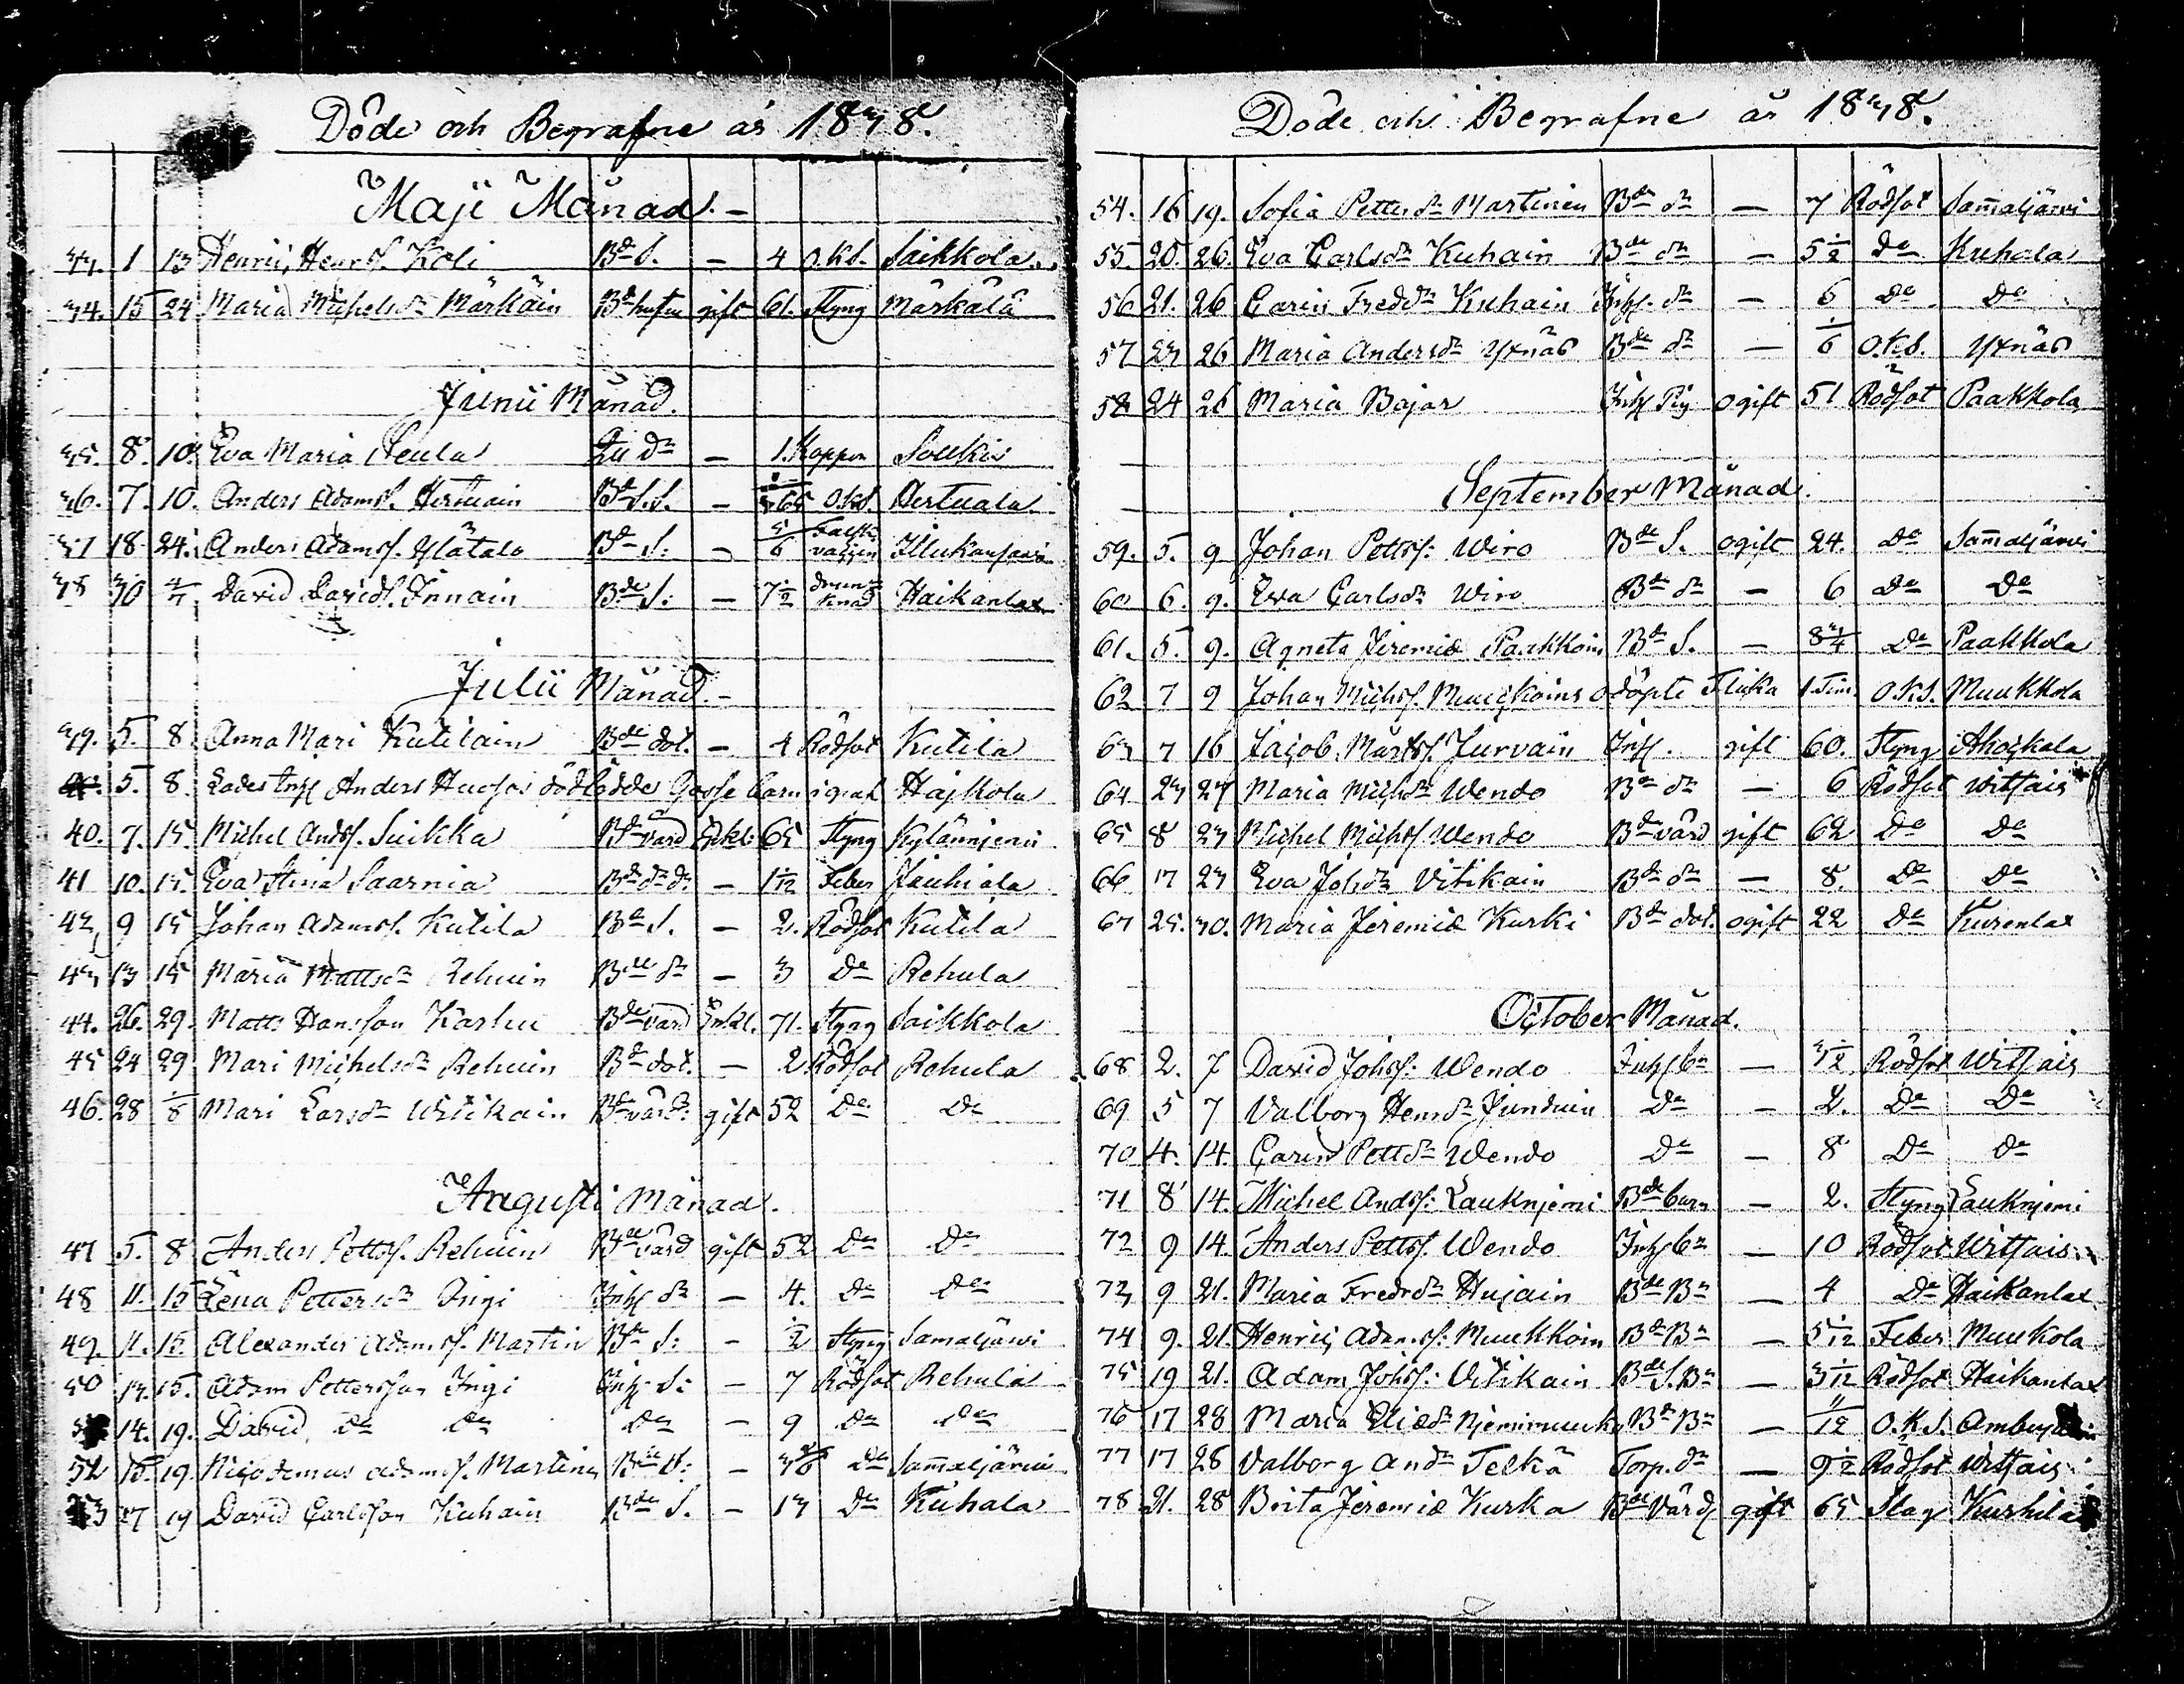 Döde och Begrafne år 1838.
Maji Månad.
33. 1 13 Henric Henrss. Koli Bde S. — 4 O.k.s. Saikkola.
34. 15 24 Maria Michelsdr Märkäin Bde hustru gift 61. Styng Märkälä
Junii Månad.
35. 8. 10. Eva Maria Seula dr — 1. Koppor Soukis
36. 7. 10. Anders Adamss. Hertuain Bde S.S. — O.k.s. Hertuala
37 18 24. Anders Adamss. Ylätalo Bde S: — 5/6
38 30 4/7 David Davids. Innain Bde S: — 7 1/2 Haikanlax
Julii Månad. —
39. 5. 8. Anna Mari Kutilain Bde dot. — 4 Rödsot Kutila
5. 8. Anders dödfödde Gosse barn Hajkola
40. 7. 15. Michel Andss. Suikka Bde värd Enkl: 65 Styng Kylänniemi
41 10. 15. Eva Stina Saarnia Bde dr dr — 1 1/12 Feber Jauhiala
42, 9 15 Johan Adamss. Kutila Bde S. — 2. Rödsot Kutila
43 13 15 Maria Mattsdr Rehuin Bde dr — 3 Do Rehula
44. 26. 29. Matts Hansson Karhu Bde värd Enkl. 71. Styng Saikkola
45 24 29 Mari Michelsdr Rehuin Bde dot. — 2. Rödsot Rehula
46. 28 1/8 Mari Larsdr Witikain Bde värd: gift 52 Do Do
Augusti Månad.
47 5. 8 Anders Pettss. Rehuin Bde värd gift 52 Do Do
48 11. 15 Lena Pettersdr Ingi Inhs dr — 4. Do Do
49. 11. 15. Alexander Adamss. Martin Bde S: — 1/2 Styng Samaljärvi
50 13. 15. Adam Pettersson Ingi Inhs S: — 7 Rödsot Rehula
14. 19. David Do Do Do — 9 Do Do
52 15. 19. Nicodemus Adamss. Martin Bde S: — Do Sam̄aljärvi
53 17 19 David Carlsson Kuhain Bde S. — 13 Do Kuhala
Döde och Begrafne år 1838.
54. 16 19. Sofia Pettersdr Martinen Bde dr — 7 Rödsot Sam̄aljärvi
55. 20. 26. Eva Carlsdr Kuhain Bde dr — 5 1/2 Do Kuhala
56 21. 26 Carin Fredrdr Kuhain Inhs. dr — 6 Do Do
57 23 26 Maria Andersdr Yxnäs Bde dr — 1/6 O.k.s. Yxnäs
58 24 26 Maria Bajar Inhs Pig ogift 51 Rödsot Paakkola
September Månad.
59. 5. 9 Johan Pettss: Wiro Bde S. ogift 24. Do Sam̄aljärvi
60 6. 9. Eva Carlsdr Wiro Bde dr — 6 Do Do
61. 5. 9. Agneta Jeremiæ Paakkoin Bde S. — 8 3/4 Do Paakkola
62 7 9 Johan Michss. Muuckoins odöpte Flicka 1. Tim. O.k.s. Muukkola
63 7 16 Jacob Mårtss. Jurvain Inhs. gift 60. Styng Ahockala
64 23 27 Maria Michsdr Wendo Bde dr — 6 Rödsot Witsais
65 8 23 Michel Michss. Wendo Bde värd gift 62 Do Do
66 17 23 Eva Johsdr Vitikain Bde dr — 8. Do Do
67 25. 30. Maria Jeremiæ Kurki Bde dot. ogift 22 Do Kurenlax
October Månad.
68 2. 7 David Johss: Wendo Inhs bn — 3 1/2 Rödsot Witsais
69 5 7 Valborg Henrsdr Junduin Do — 2. Do Do
70 4. 14. Carin Pettdr Wendo Do — 8 Do Do
71 8 14. Michel Andss: Lauknjemi Bde barn — 2. Styng Lauknjemi
72 9 14. Anders Pettss. Wendo Inhs bn — 10 Rödsot Witsais
73 9 21. Maria Fredrdr Hujain Bde Bn — 4 Do Haikanlax
74 9. 21. Henric Adamss: Muukkoin Bde Bn — 5 1/12 Feber Muukola
75 19 21. Adam Johss: Vitikain Bde S. Bn — 3 1/12 Rödsot Haikanlax
76 17 28 Maria Eliædr Njemimuuko Bde Bn — 11/12 O.k.s.
77 17 28 Valborg Andr Telkä Torp. dr — 9 1/2 Rödsot Witsais
78 21. 28 Brita Jeremiæ Kurka Bde Värd gift 65 Slag Kurhila